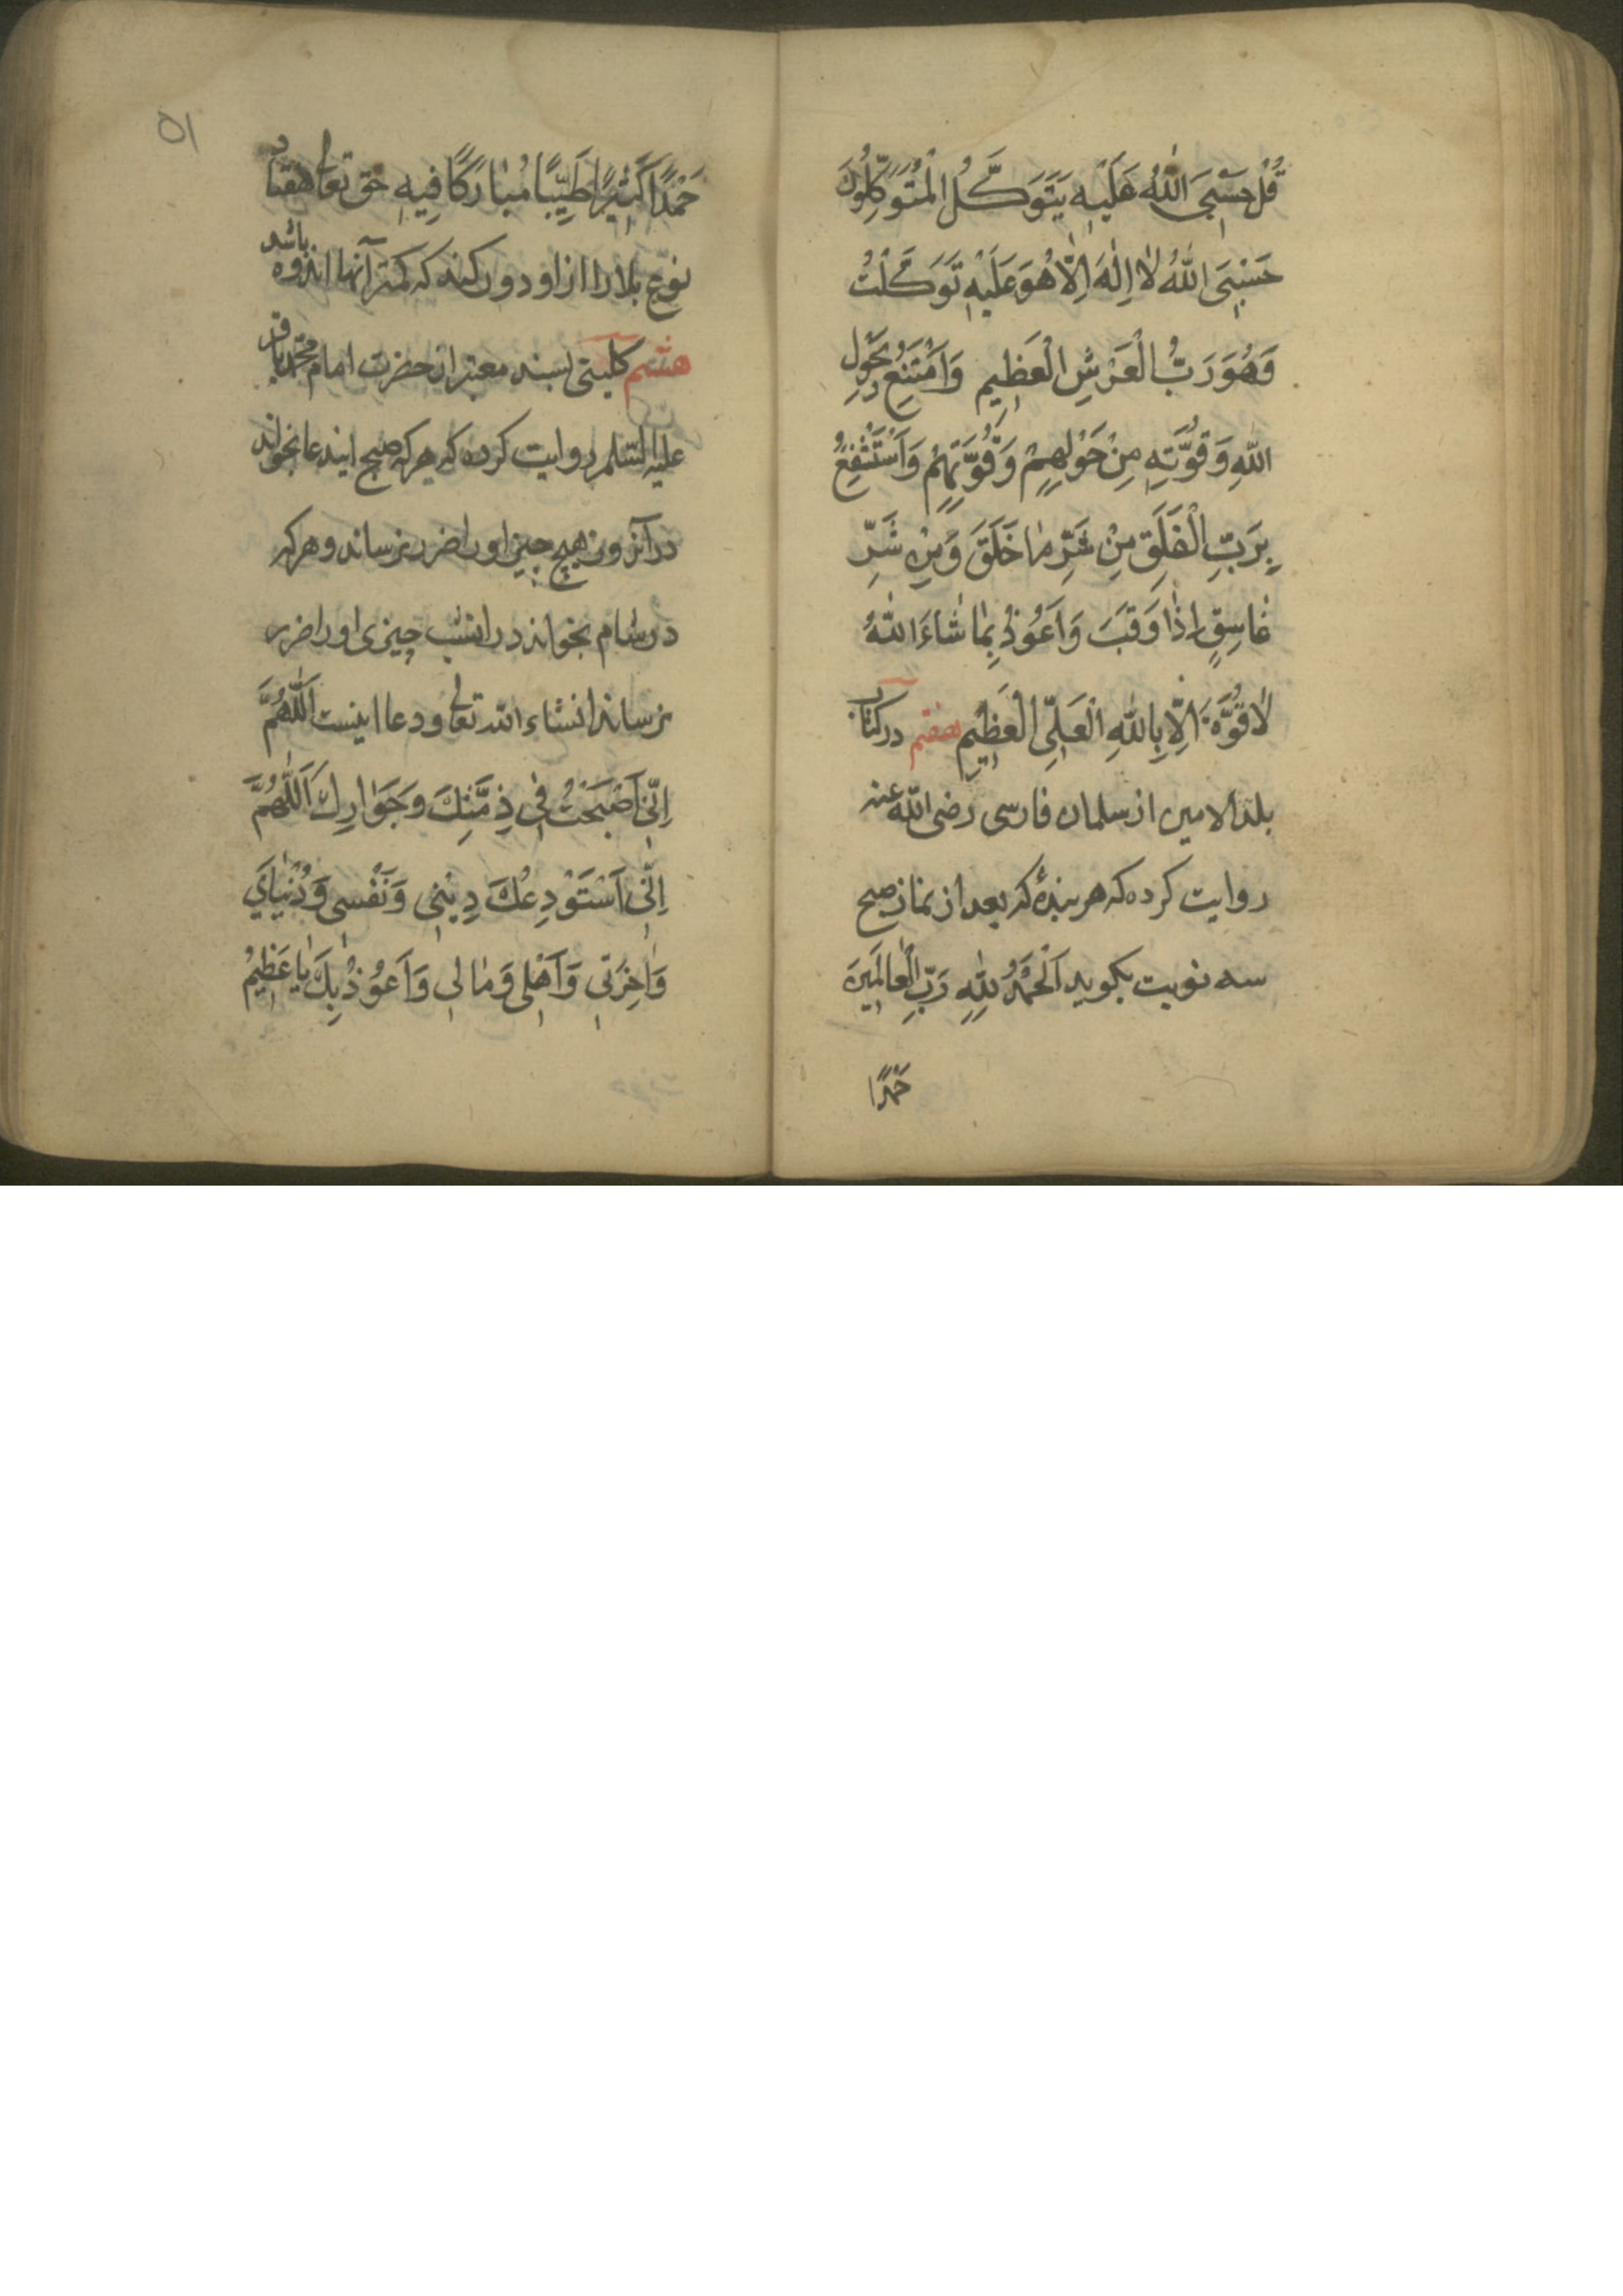 قُلْ حَسْبِيَ اللّٰهُ عَلَيْهِ يَتَوَكَّلُ الْمُتَوَكِّلُونَ
حَسْبِيَ اللّٰهُ لَا اِلٰهَ اِلَّا هُوَ عَلَيْهِ تَوَكَّلْتُ
وَهُوَ رَبُّ الْعَرْشِ الْعَظِيمِ وَاَمْتَنِعُ بِحَوْلِ
اللّٰهِ وَقُوَّتِهِ مِنْ حَوْلِهِمْ وَقُوَّتِهِمْ وَاَسْتَشْفِعُ
بِرَبِّ الْفَلَقِ مِنْ شَرِّ مَا خَلَقَ وَمِنْ شَرِّ
غَاسِقٍ اِذَا وَقَبَ وَاَعُوذُ بِمَا شَاءَ اللّٰهُ
لَا قُوَّةَ اِلَّا بِاللّٰهِ الْعَلِيِّ الْعَظِيمِ هفتم در کتاب
بلد الامین از سلمان فارسی رضی الله عنه
روایت کرده که هر بندهٔ که بعد از نماز صبح
سه نوبت بکوید اَلْحَمْدُ لِلّٰهِ رَبِّ الْعَالَمِينَ
حَمْدًا
۵۱
حَمْدًا كَثِيرًا طَيِّبًا مُبَارَكًا فِيهِ حق تعالی هفتاد
نوع بلا را از او دور کند که کمتر آنها اندوه باشد
هشتم کلینی بسند معتبر از حضرت امام محمد باقر
علیه السلم روایت کرده که هر که صبح ایندعا بخواند
در آنروز هیچ چیز او را ضرر نرساند و هر که
در شام بخواند در انشب چیزی او را ضرر
نرساند انشاء الله تعالی و دعا اینست اَللّٰهُمَّ
اِنِّي اَصْبَحْتُ فِي ذِمَّتِكَ وَجَوَارِكَ اَللّٰهُمَّ
اِنِّي اَسْتَوْدِعُكَ دِينِي وَنَفْسِي وَدُنْيَايَ
وَاٰخِرَتِي وَاَهْلِي وَمَالِي وَاَعُوذُ بِكَ يَا عَظِيمُ